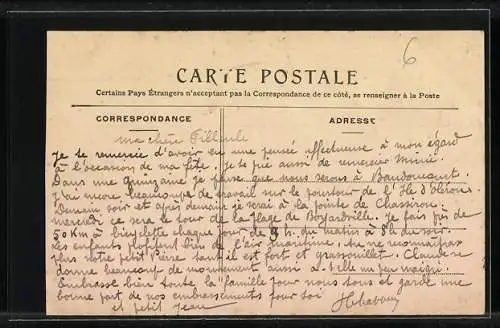 6
CARTE POSTALE
Certains Pays Étrangers n'acceptent pas la Correspondance de ce côté, se renseigner à la Poste
CORRESPONDANCE
ADRESSE
ma chère Filleule
Je te remercie d'avoir eu une pensée affectueuse à mon égard
à l'occasion de ma fête. Je te prie aussi de remercier Mimi.
Dans une quinzaine je pense que nous serons à
J'ai encore beaucoup de travail sur le pourtour de l'Ile d'Oléron.
Demain soir et après demain je serai à la pointe de Chassiron.
mercredi ce sera le tour de la plage de Boyardville. Je fais près de
50 Km à bicyclette chaque jour de 3 h. du matin à 8 h du soir.
Les enfants profitent bien de l'air maritime. tu ne reconnaitras
plus notre petit Pierre tant il est fort et grassouillet. Claude se
donne beaucoup de mouvement aussi a-t-elle un peu maigri.
Embrasse bien toute la famille pour nous tous et garde une
bonne part de nos embrassements pour toi
et petit Jean